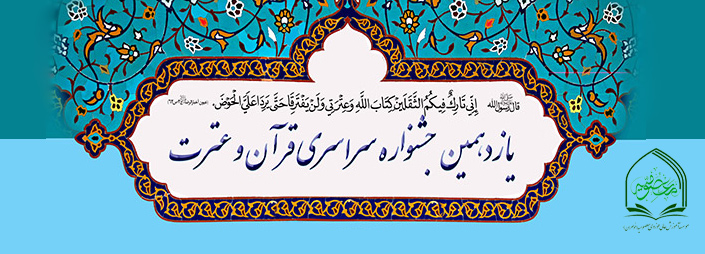 قال رسول الله إِنِّي تَارِكٌ فِيكُمُ الثَّقَلَيْنِ كِتَابَ اللَّهِ وَعِتْرَتِي وَلَنْ يَفْتَرِقَا حَتَّى يَرِدَا عَلَيَّ الْحَوْضَ.
یازدهمین جشنواره سراسری قرآن و عترت